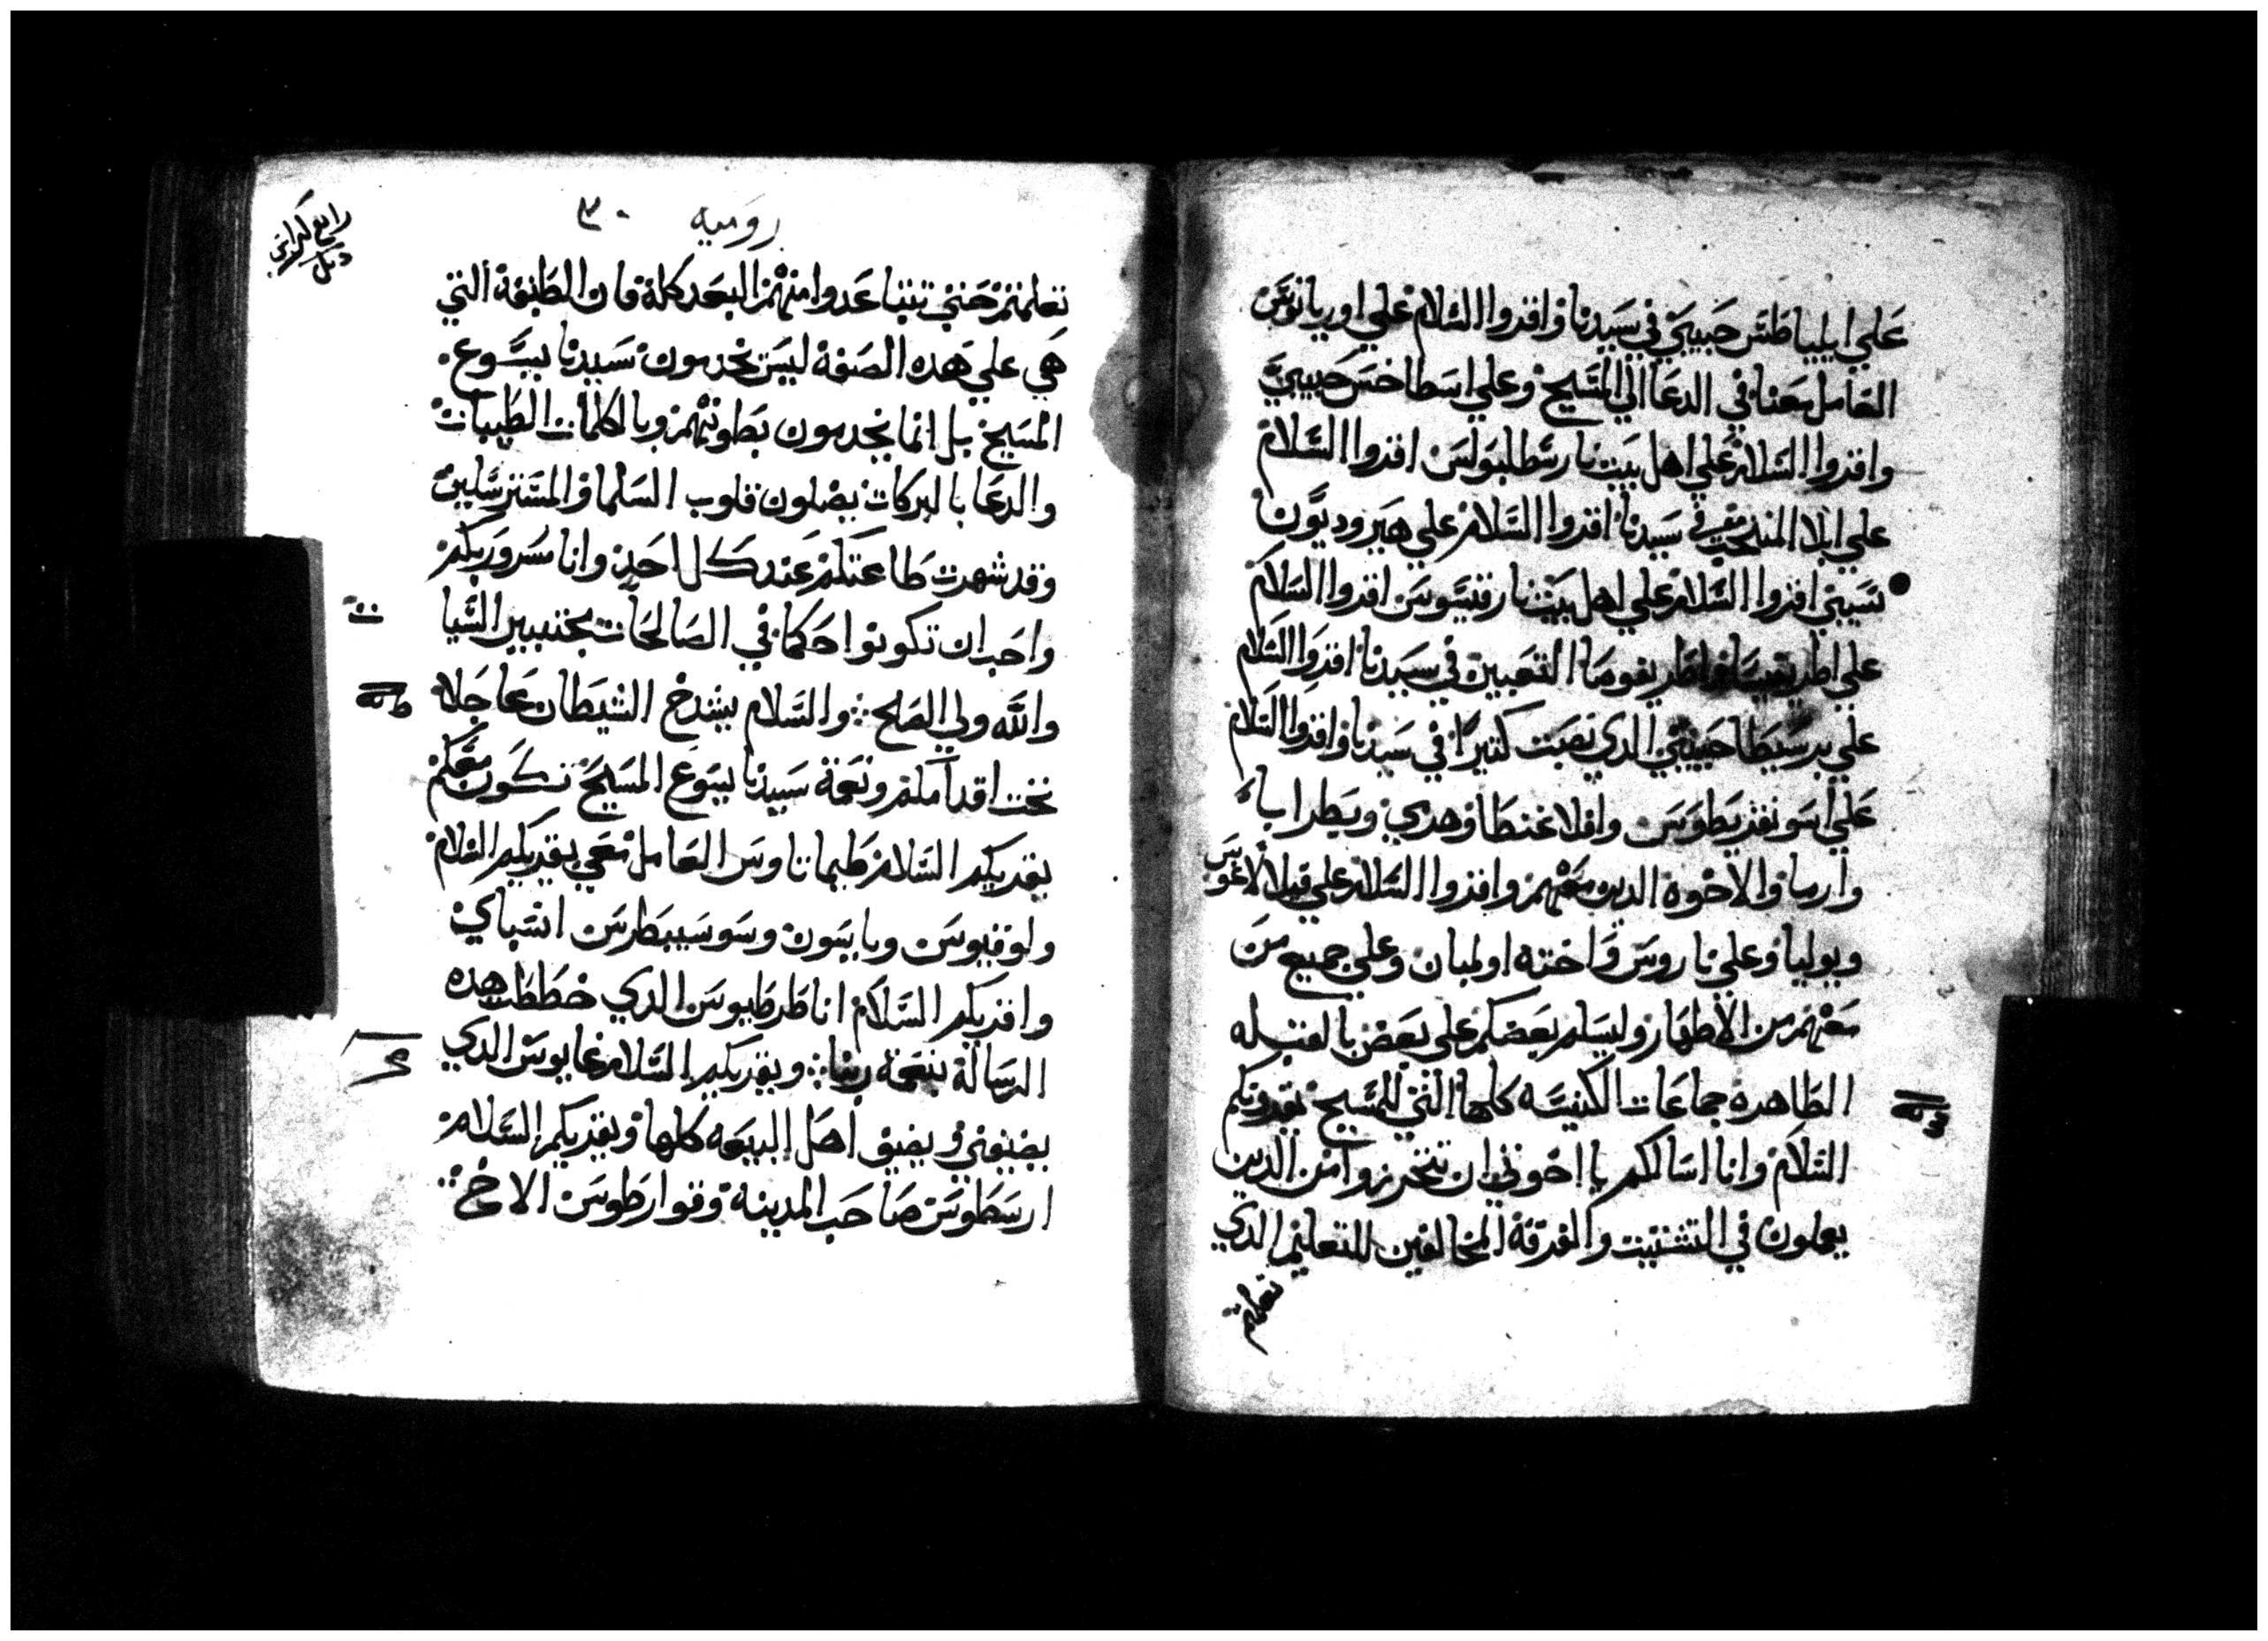 علي ايلياطس حبيبي في سيدنا واقروا السلام علي اوريانوس
العامل معنا في الدعا الي المسيح وعلي اسطاخس حبيبي
واقروا السلام علي اهل بيت ارسطابولس اقروا السلام
علي ابلا المنتخب في سيدنا اقروا السلام علي هيروديون
نسيبي اقروا السلام علي اهل بيت نارقسوس اقروا السلام
علي اطريفوسا التعبين في سيدنا اقروا السلام
علي برسيطا حبيبتي الدي نصبت كتيرا في سيدنا واقروا السلام
علي اسونقريطوس وافلاغنطا وهدي وبطرابا
وارما والاخوة الدين معهم واقروا السلام علي فيلالاغوس
ويوليا وعلي ناروس واخته اولمبان وعلي جميع من
معهم من الاطهار وليسلم بعضكم علي بعض بالقبله
الطاهره جماعات الكنيسه كلها التي للمسيح يقرونكم
السلام وانا اسالكم يا اخوتي ان تتحرزوا من الدين
يعملون في التشتيت والفرقة المخالفين للتعليم الدي
تعلمتم
روميه ٣٠
رابع كراس
تعلمتم حتي تتباعدوا منهم البعد كلة فان الطبقة التي
هي علي هده الصفة ليس يخدمون سيدنا يسوع
المسيح بل انما يخدمون بطونهم وبالكلمات الطيبات
والدعا بالبركات يضلون قلوب السلما والمسترسلين
وقد شهرت طاعتكم عند كل احد وانا مسرور بكم
واحب ان تكونوا حكما في الصالحات مجتنبين السيا
والله ولي الصلح والسلام يشدخ الشيطان عاجلا
تحت اقدامكم ونعمة سيدنا يسوع المسيح تكون معكم
يقريكم السلام طيماتاوس العامل معي يقريكم السلام
ولوقيوس وياسون وسوسيبطرس انسباي
واقريكم السلام انا طرطيوس الدي خططت هده
الرسالة بنعمة ربنا ويقريكم السلام غايوس الدي
يضيفني ويضيق اهل البيعه كلها ويقريكم السلام
ارسطوس صاحب المدينة وقوارطوس الاخ